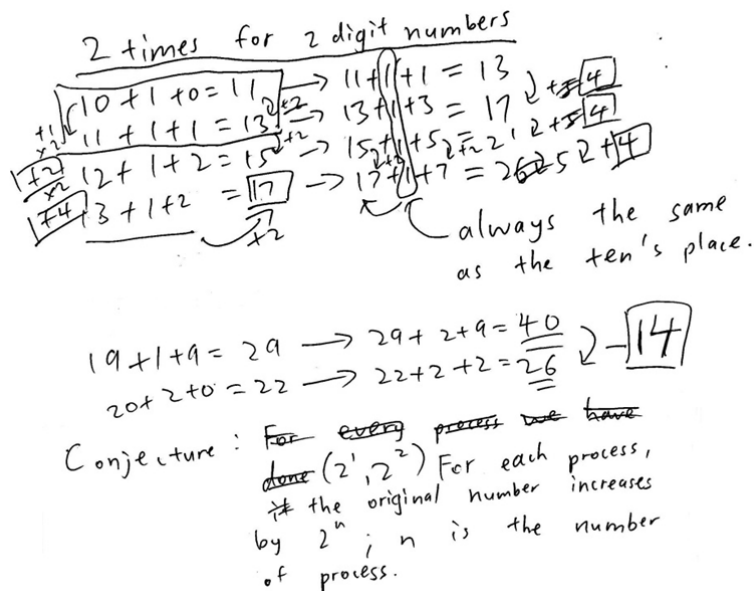 2 times for 2 digit numbers
10+1+0=11 → 11+1+1=13
11+1+1=13 → 13+1+3=17
12+1+2=15 → 15+1+5=21
13+1+2=17 → 17+1+7=25
+1
×2
+2
×2
+4
+2
+2
+2
+2
+2
+4
+4
+4
always the same
as the ten's place.
19+1+9=29 → 29+2+9=40
20+2+0=22 → 22+2+2=26
-14
Conjecture: For every process we have
done (2¹, 2²) For each process,
the original number increases
by 2ⁿ; n is the number
of process.